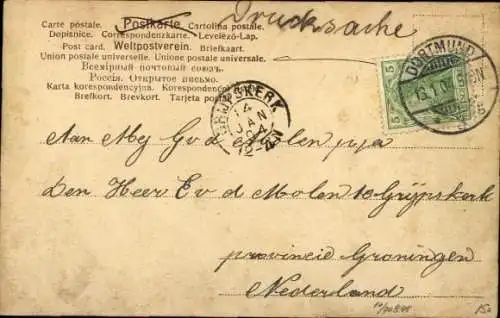 Drucksache
Carte postale. Postkarte. Cartolina postale.
Dopisnice. Correspondenzkarte. Levelező-Lap.
Post card. Weltpostverein. Briefkaart.
Union postale universelle. Unione postale universale.
Всемірный почтовый союзъ.
Россія. Открытое письмо.
Karta korespondencyjna. Korespondenční
Brefkort. Brevkort. Tarjeta
DORTMUND
5
5
GRIJPSKERK
4 JAN 04
12-4N
Aan Mej G v d Molen
Den Heer E v d Molen te Grijpskerk
provincie Groningen
Nederland